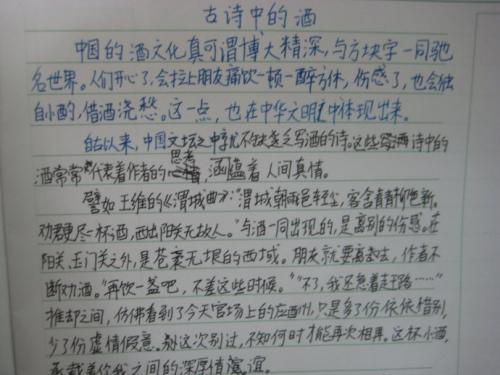 古诗中的酒
中国的酒文化真可谓博大精深,与方块字一同驰
名世界。人们开心了,会拉上朋友痛饮一顿一醉方休,伤感了,也会独
自小酌,借酒浇愁。这一点,也在中华文明之中体现出来。
自古以来,中国文坛之中尤不缺乏写酒的诗。这些诗中的
酒常常代表着作者的思考,涵蕴着人间真情。
譬如王维的《渭城曲》:"渭城朝雨浥轻尘,客舍青青柳色新。
劝君更尽一杯酒,西出阳关无故人。"与酒一同出现的,是离别的伤感。在
阳关、玉门关之外,是苍袤无垠的西域。朋友就要离去,作者不
断劝酒。"再饮一盏吧,不差这些时候。""不了,我还急着赶路……"
推却之间,仿佛看到了今天官场上的应酬,只是多了份依依惜别,
少了份虚情假意。别这次别过,不知何时才能再次相再。这杯小酒,
承载着你我之间的深厚情谊。